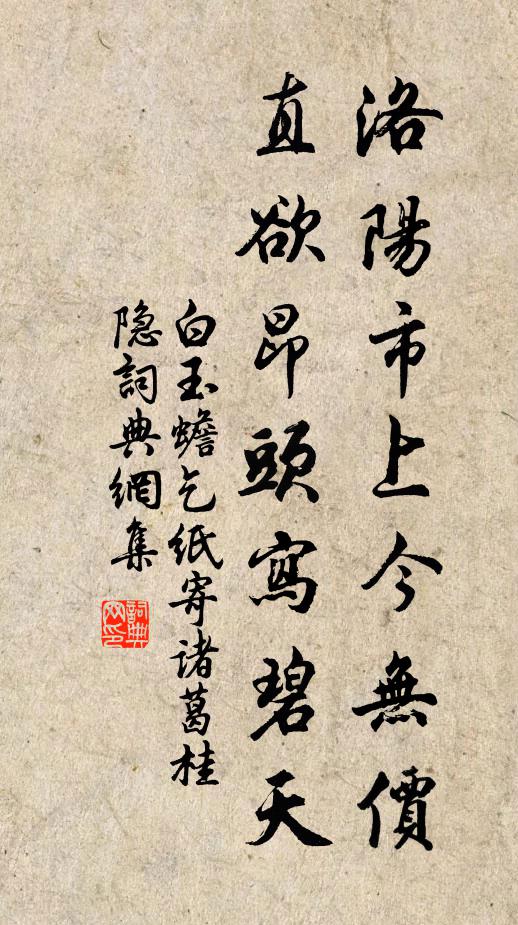 洛陽市上今無價
直欲昂頭寫碧天
白玉蟾乞紙寄諸葛桂
隐詞典網集
詞典
网印